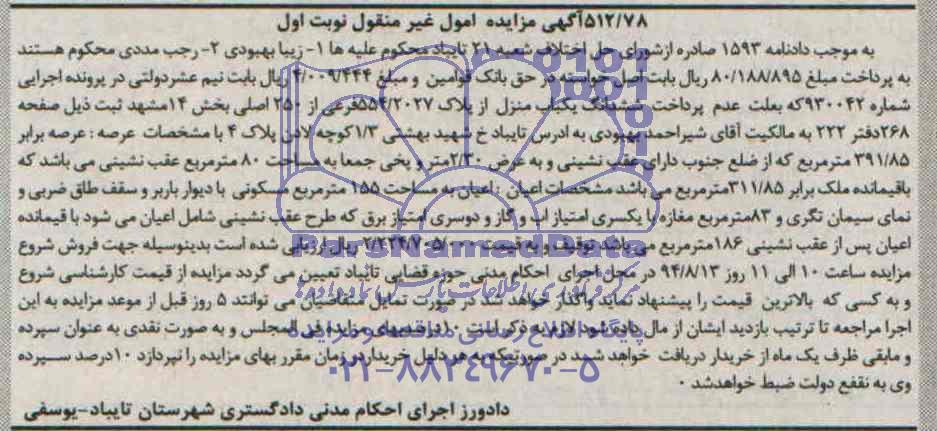 ۵۱۲/۷۸آگهی مزایده امول غیر منقول نوبت اول
به موجب دادنامه ۱۵۹۳ صادره ازشورای حل اختلاف شعبه ۲۱ تایباد محکوم علیه ها ۱- زیبا بهبودی ۲- رجب مددی محکوم هستند
به پرداخت مبلغ ۸۰/۱۸۸/۸۹۵ ریال بابت اصل خواسته در حق بانک قوامین و مبلغ ۴/۰۰۹/۴۴۴ ریال بابت نیم عشردولتی در پرونده اجرایی
شماره ۹۳۰۰۴۲که بعلت عدم پرداخت ششدانگ یکباب منزل از پلاک ۵۵۴/۲۰۲۷فرعی از ۲۵۰ اصلی بخش ۱۴مشهد ثبت ذیل صفحه
۲۶۸دفتر ۲۲۲ به مالکیت آقای شیراحمد بهبودی به ادرس تایباد خ شهید بهشتی ۱/۳کوچه لادن پلاک ۴ با مشخصات عرصه : عرصه برابر
۳۹۱/۸۵ مترمربع که از ضلع جنوب دارای عقب نشینی و به عرض ۲/۳۰متر و پخی جمعا به مساحت ۸۰ مترمربع عقب نشینی می باشد که
باقیمانده ملک برابر ۳۱۱/۸۵مترمربع می باشد مشخصات اعیان : اعیان به مساحت ۱۵۵ مترمربع مسکونی با دیوار باربر و سقف طاق ضربی و
نمای سیمان تگری و ۸۳مترمربع مغازه با یکسری امتیاز اب و گاز و دوسری امتیاز برق که طرح عقب نشینی شامل اعیان می شود با قیمانده
اعیان پس از عقب نشینی ۱۸۶مترمربع می باشد توقیف و به قیمت ریال ارزیابی شده است بدینوسیله جهت فروش شروع
مزایده ساعت ۱۰ الی ۱۱ روز ۹۴/۸/۱۳ در محل اجرای احکام مدنی حوزه قضایی تائباد تعیین می گردد مزایده از قیمت کارشناسی شروع
و به کسی که بالاترین قیمت را پیشنهاد نماید واگذار خواهد شد در صورت تمایل متقاضیان می توانند ۵ روز قبل از موعد مزایده به این
اجرا مراجعه تا ترتیب بازدید ایشان از مال داده شود لازم به ذکر است ۱۰درصدبهای مزایده فی المجلس و به صورت نقدی به عنوان سپرده
و مابقی ظرف یک ماه از خریدار دریافت خواهد شد در صورتیکه به هر دلیل خریدار در زمان مقرر بهای مزایده را نپردازد ۱۰درصد سپرده
وی به نقفع دولت ضبط خواهدشد ۰
دادورز اجرای احکام مدنی دادگستری شهرستان تایباد-یوسفی
ParsNamadData
مرکز فرآوری اطلاعات پارس نماد داده ها
پایگاه اطلاع رسانی مناقصه و مزایده
۰۲۱-۸۸۳۴۹۶۷۰-۵